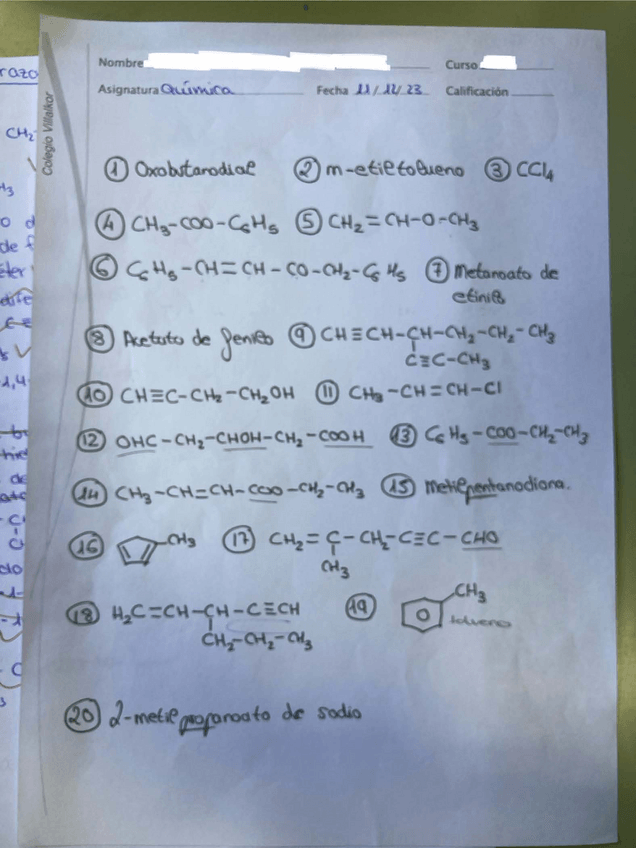 Nombre Curso
Asignatura Química Fecha 11/12/23 Calificación
Colegio Villalkor
① Oxobutanodial ② m-etiltolueno ③ CCl4
④ CH3-COO-C6H5 ⑤ CH2=CH-O-CH3
⑥ C6H5-CH=CH-CO-CH2-C6H5 ⑦ Metanoato de
etinilo
⑧ Acetato de fenilo ⑨ CH≡CH-CH-CH2-CH2-CH3
C≡C-CH3
⑩ CH≡C-CH2-CH2OH ⑪ CH3-CH=CH-Cl
⑫ OHC-CH2-CHOH-CH2-COOH ⑬ C6H5-COO-CH2-CH3
⑭ CH3-CH=CH-COO-CH2-CH3 ⑮ Metilpentanodiona.
⑯ -CH3 ⑰ CH2=C-CH2-C≡C-CHO
CH3
⑱ H2C=CH-CH-C≡CH ⑲ CH3
CH2-CH2-CH3 tolueno
⑳ 2-metilpropanoato de sodio